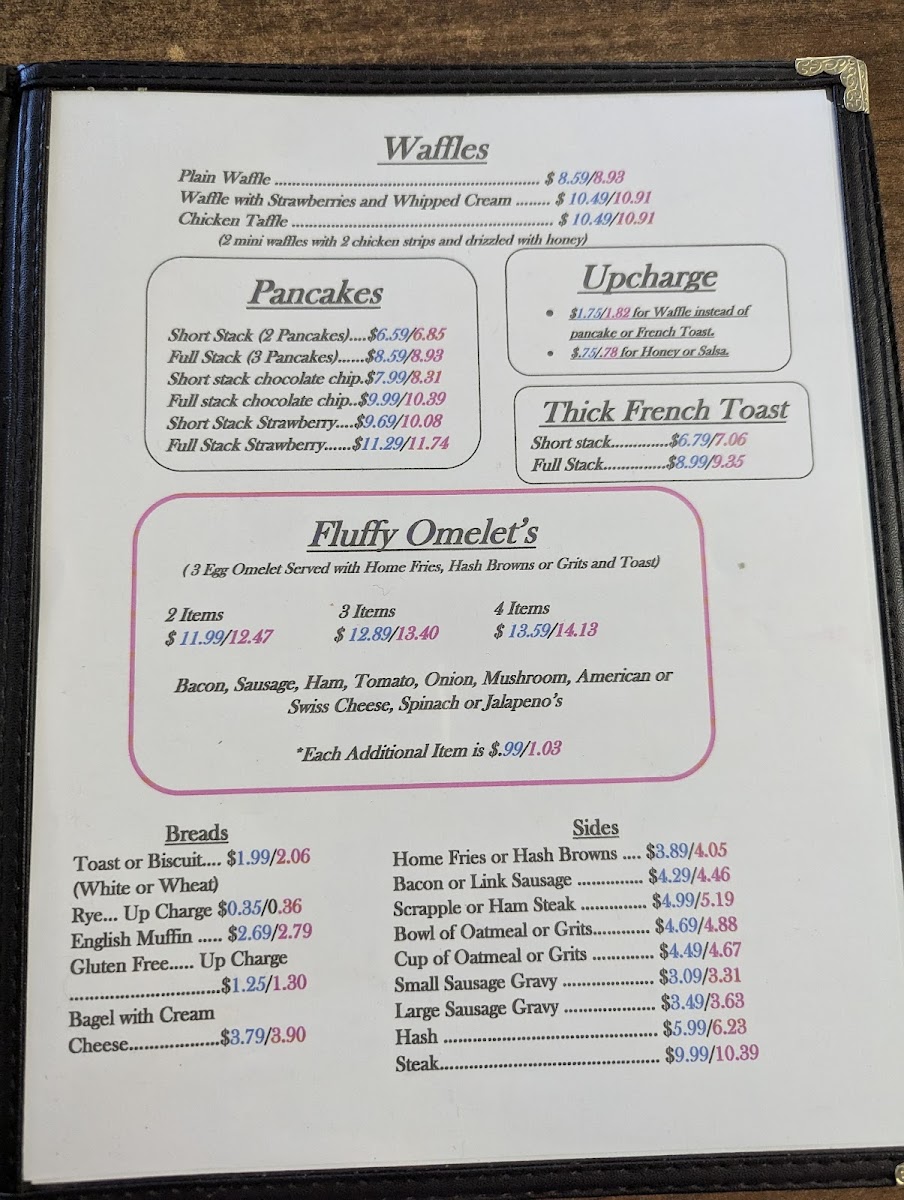 Waffles
Plain Waffle ............................................................ $ 8.59/8.93
Waffle with Strawberries and Whipped Cream ........ $ 10.49/10.91
Chicken Taffle ............................................................ $ 10.49/10.91
(2 mini waffles with 2 chicken strips and drizzled with honey)
Pancakes
Short Stack (2 Pancakes)....$6.59/6.85
Full Stack (3 Pancakes)......$8.59/8.93
Short stack chocolate chip.$7.99/8.31
Full stack chocolate chip..$9.99/10.39
Short Stack Strawberry....$9.69/10.08
Full Stack Strawberry......$11.29/11.74
Upcharge
• $1.75/1.82 for Waffle instead of
pancake or French Toast.
• $.75/.78 for Honey or Salsa.
Thick French Toast
Short stack.............$6.79/7.06
Full Stack..............$8.99/9.35
Fluffy Omelet's
( 3 Egg Omelet Served with Home Fries, Hash Browns or Grits and Toast)
2 Items 3 Items 4 Items
$ 11.99/12.47 $ 12.89/13.40 $ 13.59/14.13
Bacon, Sausage, Ham, Tomato, Onion, Mushroom, American or
Swiss Cheese, Spinach or Jalapeno's
*Each Additional Item is $.99/1.03
Breads
Toast or Biscuit.... $1.99/2.06
(White or Wheat)
Rye... Up Charge $0.35/0.36
English Muffin ..... $2.69/2.79
Gluten Free..... Up Charge
...............................$1.25/1.30
Bagel with Cream
Cheese...................$3.79/3.90
Sides
Home Fries or Hash Browns .... $3.89/4.05
Bacon or Link Sausage .............. $4.29/4.46
Scrapple or Ham Steak .............. $4.99/5.19
Bowl of Oatmeal or Grits............ $4.69/4.88
Cup of Oatmeal or Grits ............. $4.49/4.67
Small Sausage Gravy ................... $3.09/3.31
Large Sausage Gravy ................... $3.49/3.63
Hash ............................................. $5.99/6.23
Steak.............................................. $9.99/10.39